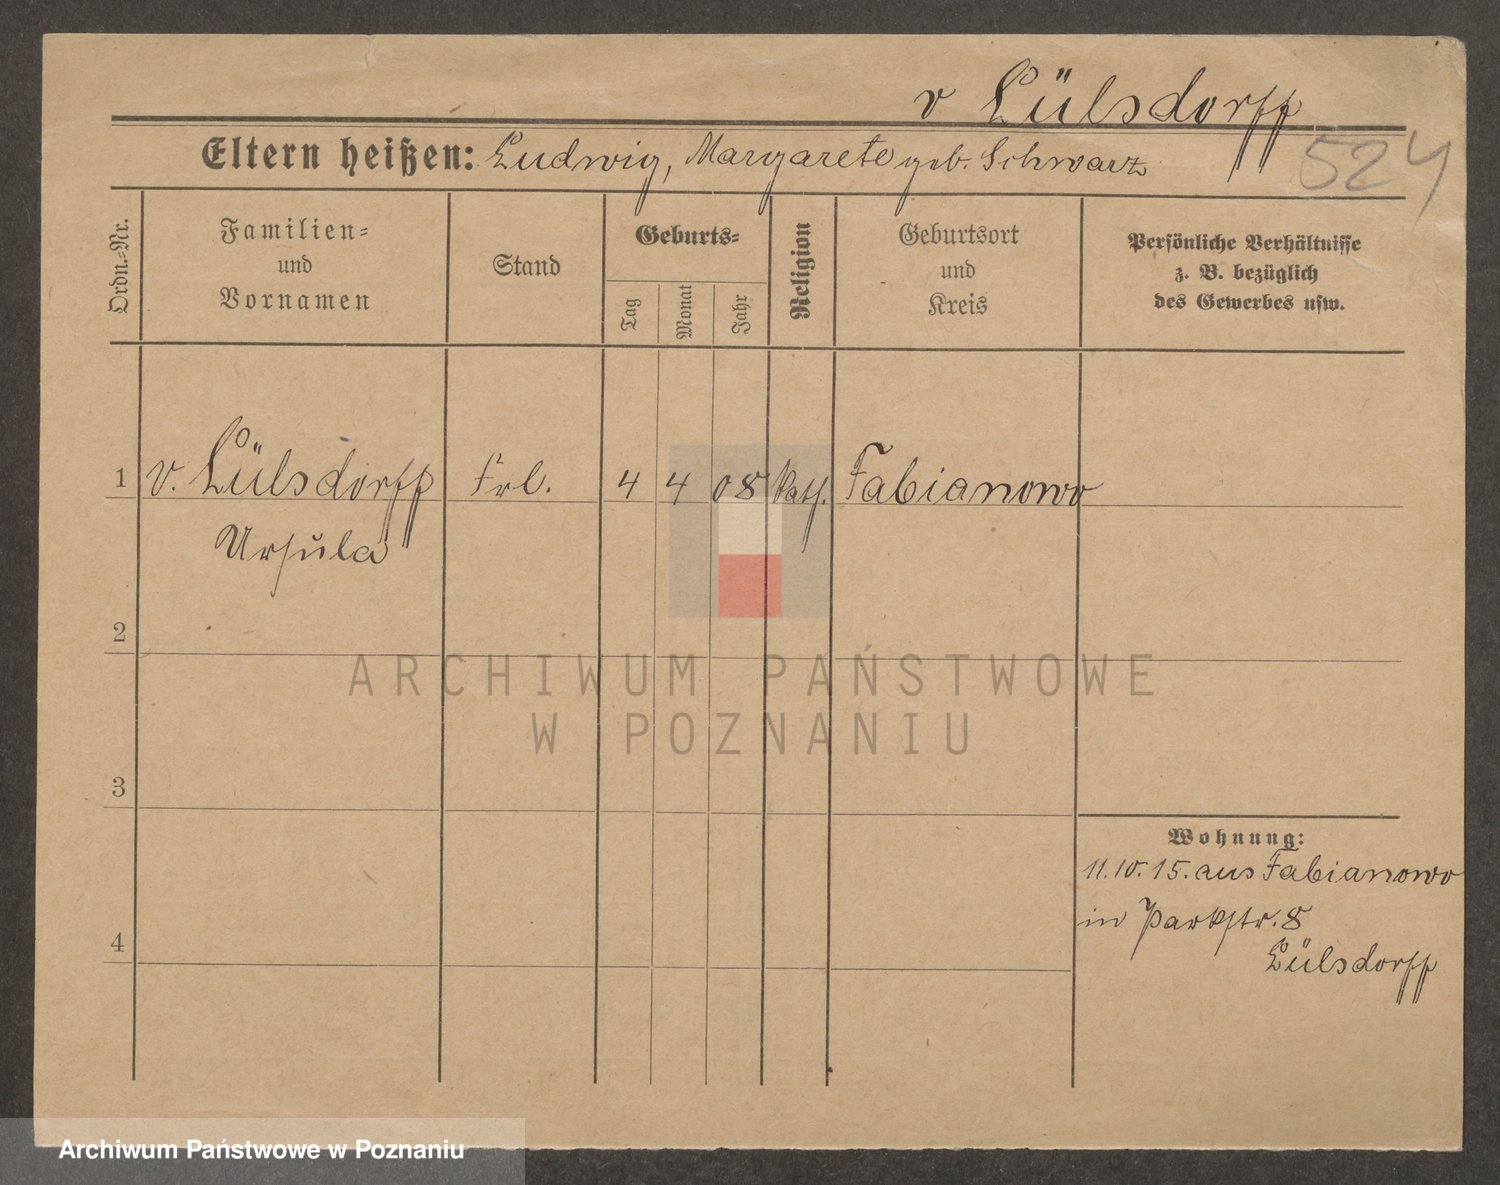 v Lülsdorff
Eltern heißen: Ludwig, Margarete geb. Schwarz
524
Ordn.-Nr.
Familien-
und
Vornamen
Stand
Geburts-
Tag
Monat
Jahr
Religion
Geburtsort
und
Kreis
Persönliche Verhältnisse
z. B. bezüglich
des Gewerbes usw.
1 v. Lülsdorff Frl. 4 4 08 kath. Fabianowo
Ursula
2
3
4
Wohnung:
11.10.15. aus Fabianowo
in Parkstr. 8
Lülsdorff
ARCHIWUM PAŃSTWOWE
W POZNANIU
Archiwum Państwowe w Poznaniu